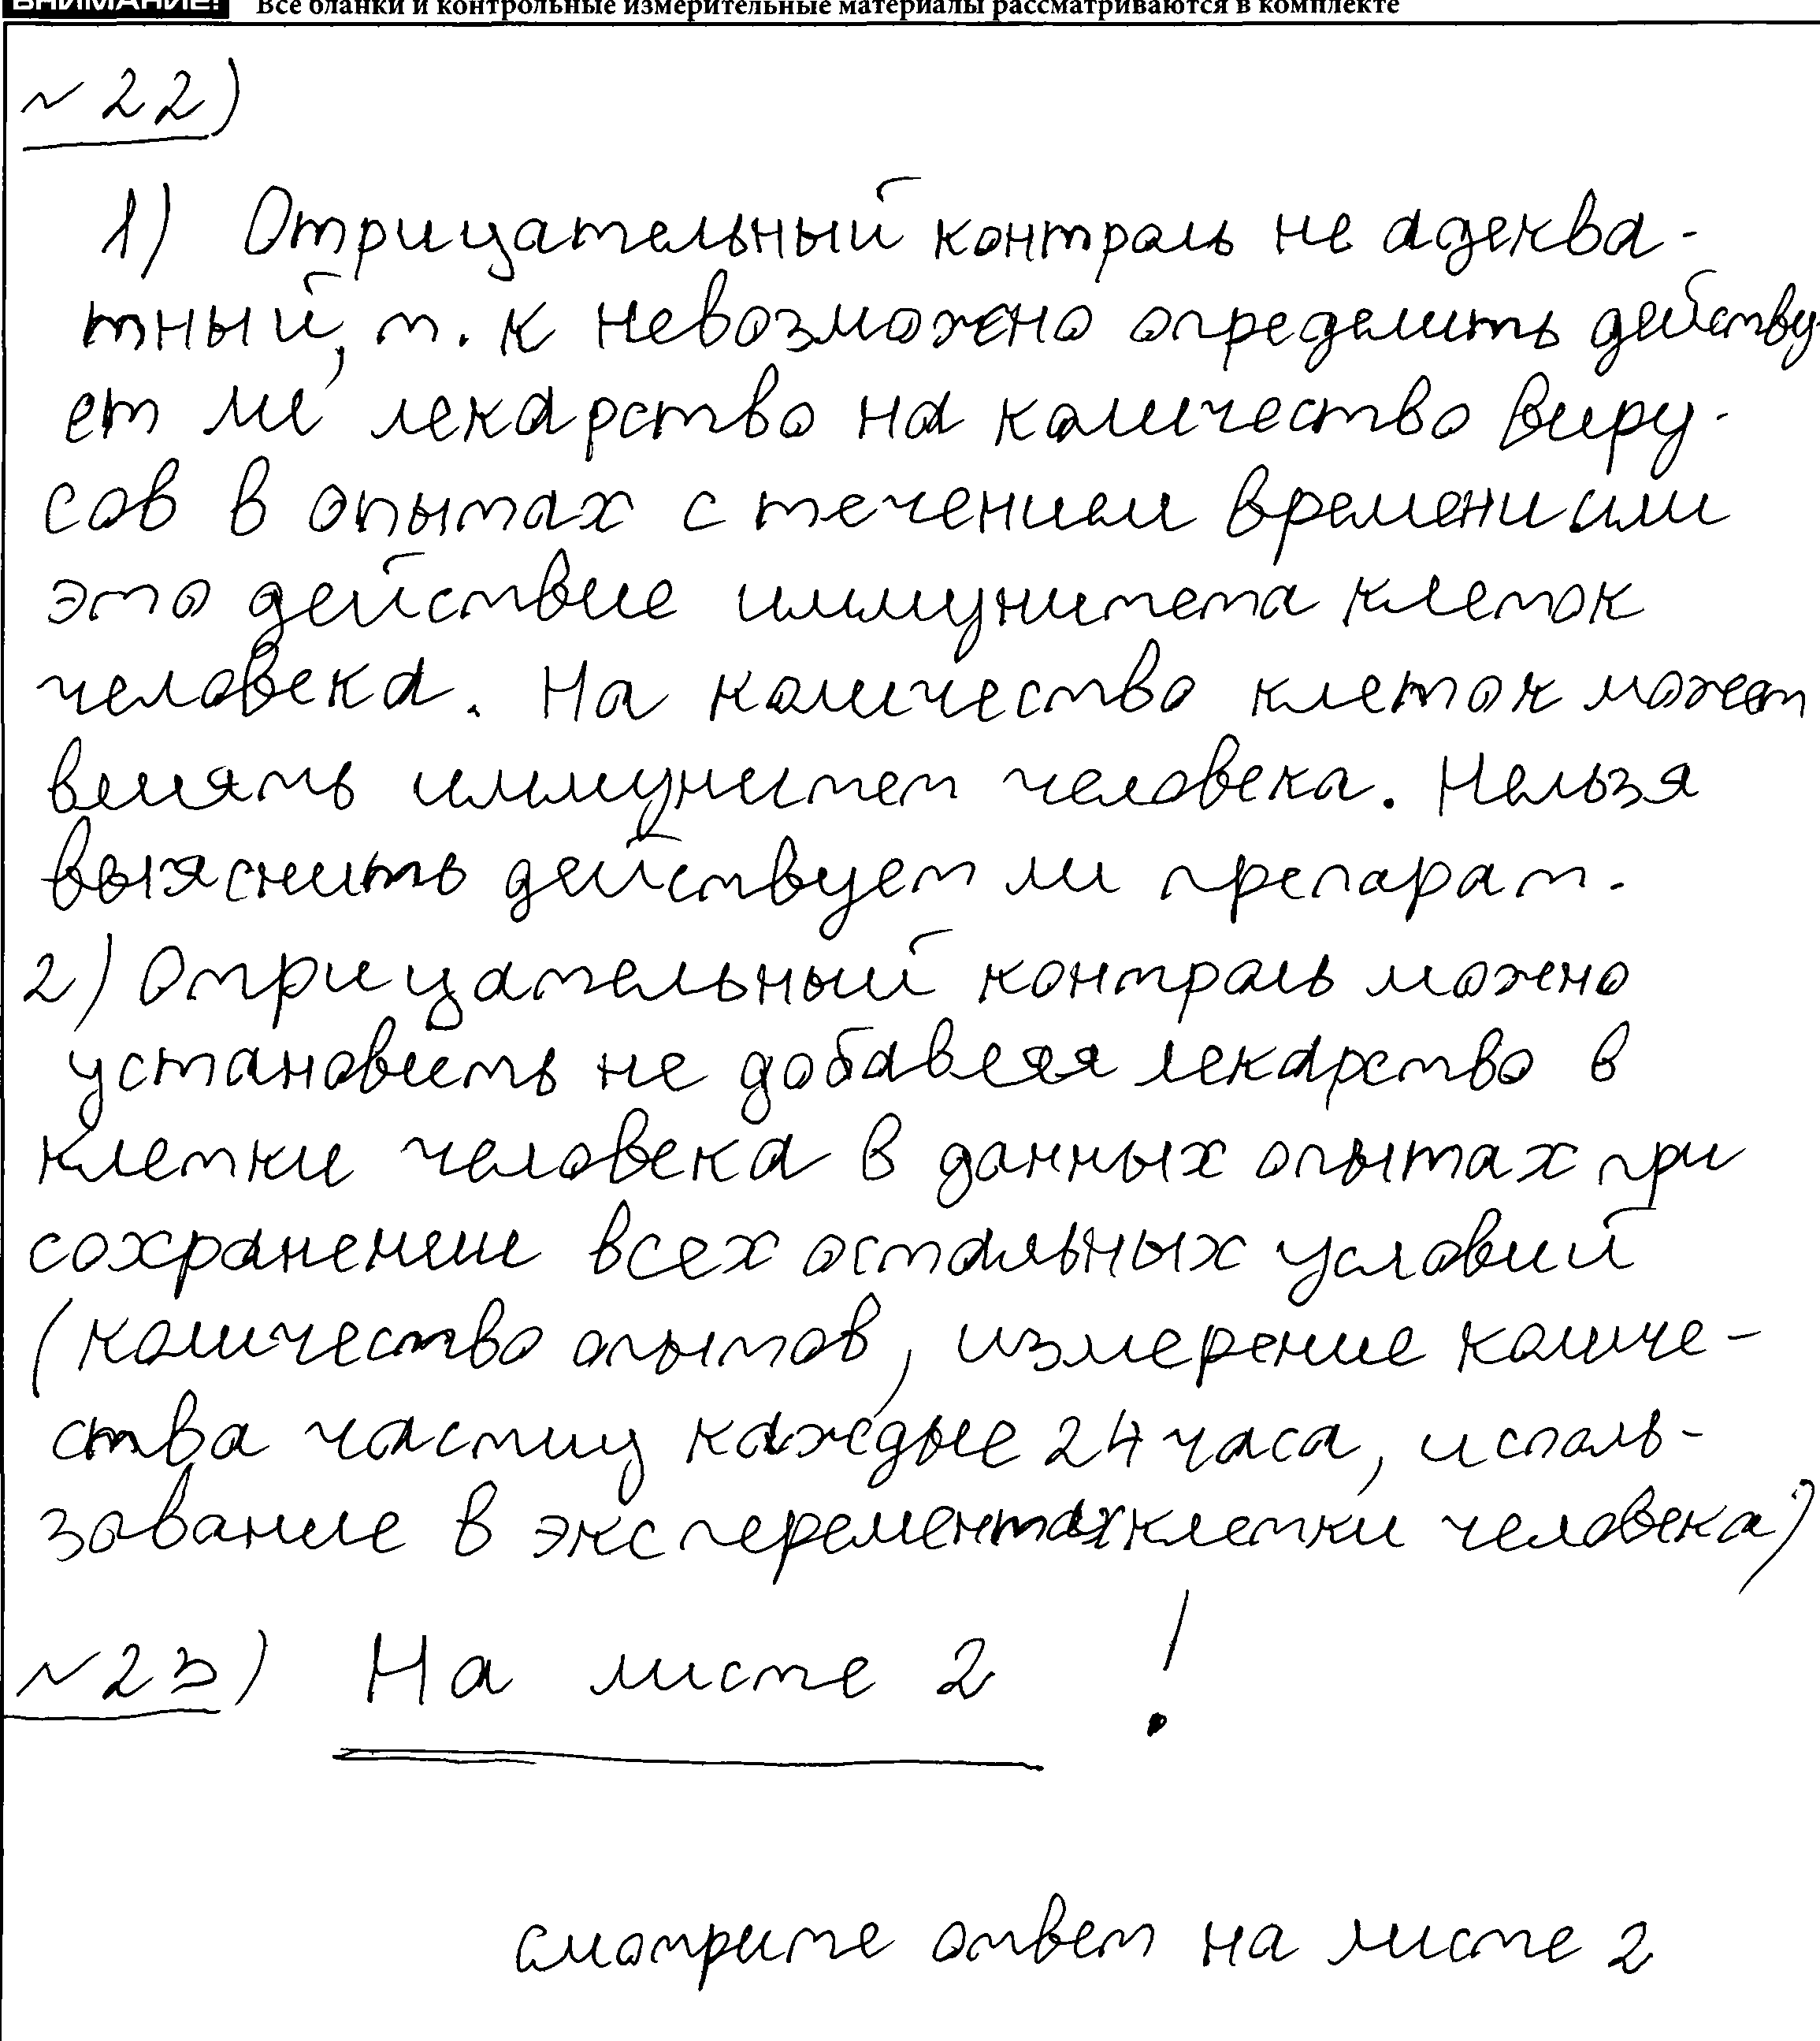 ВНИМАНИЕ! Все бланки и контрольные измерительные материалы рассматриваются в комплекте
№ 22)
1) Отрицательный контроль не адеква-
тный, т. к невозможно определить действу-
ет ли лекарство на количество виру-
сов в опытах с течением времени или
это действие иммунитета клеток
человека. На количество клеток может
влиять иммунитет человека. Нельзя
выяснить действует ли препарат.
2) Отрицательный контроль можно
установить не добавляя лекарство в
клетки человека в данных опытах при
сохранении всех остальных условий
(количество опытов, измерение количе-
ства частиц каждые 24 часа, исполь-
зование в эксперементах клетки человека)
№ 23) На листе 2 !
смотрите ответ на листе 2